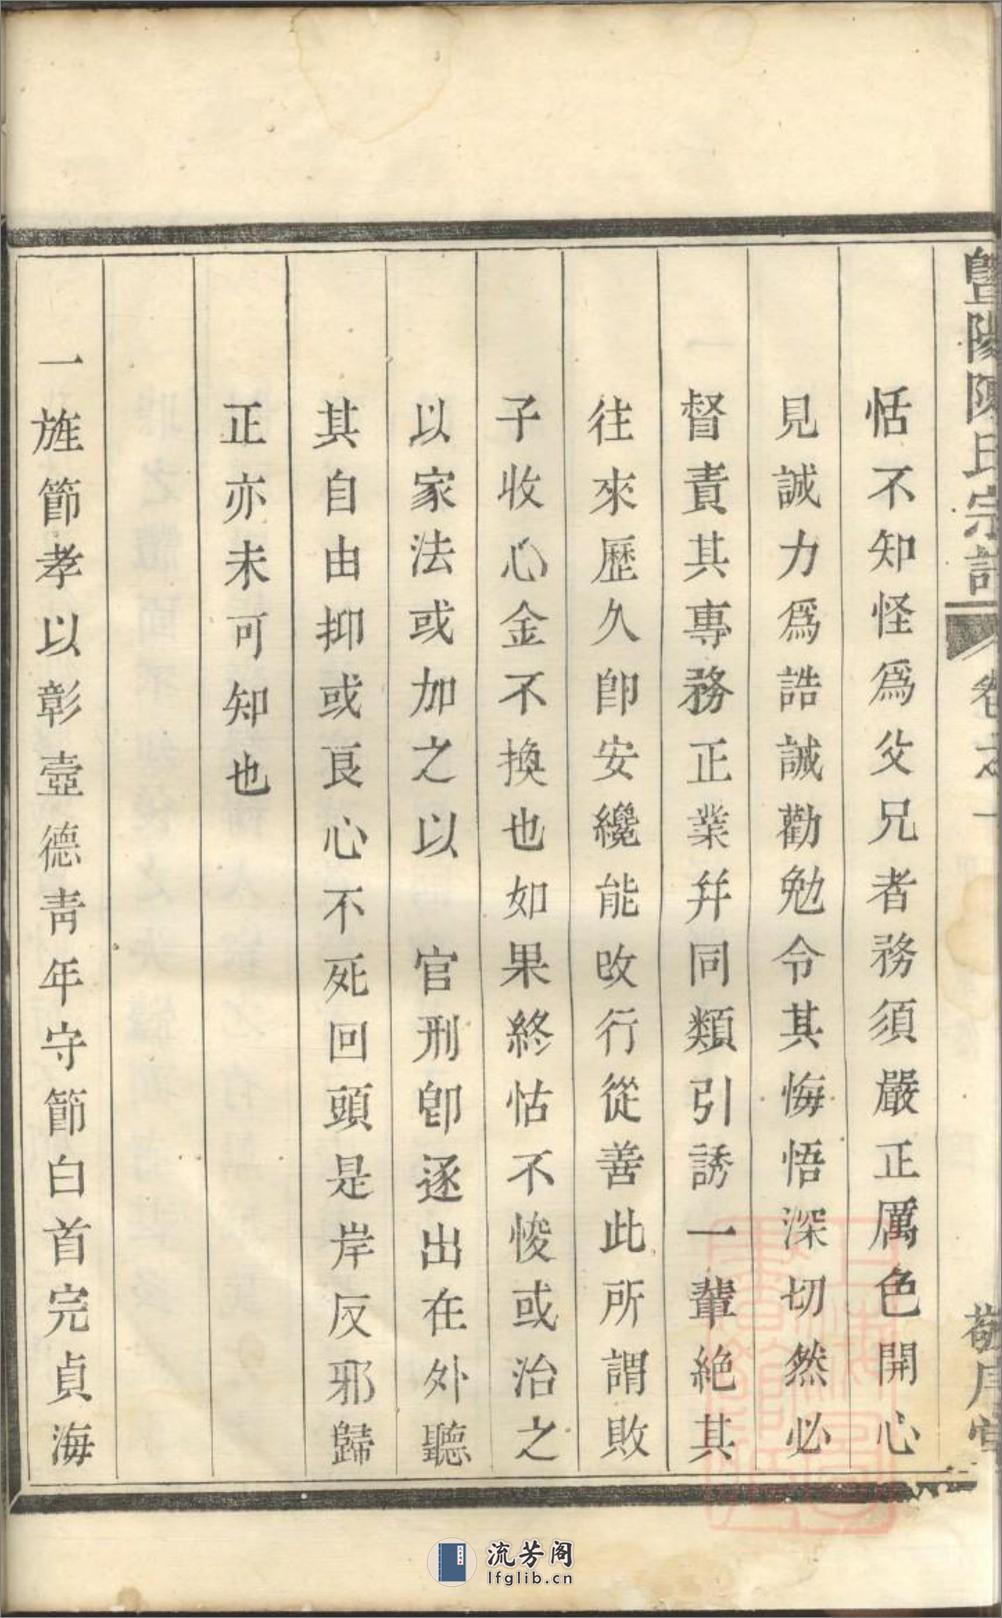 暨陽陳氏宗譜
卷之十
恬不知怪爲父兄者務須嚴正厲色開心
見誠力爲誥誡勸勉令其悔悟深切然必
督責其專務正業幷同類引誘一輩絶其
往來歷久卽安纔能改行從善此所謂敗
子收心金不換也如果終怙不悛或治之
以家法或加之以　官刑卽逐出在外聽
其自由抑或良心不死回頭是岸反邪歸
正亦未可知也
一旌節孝以彰壼德靑年守節白首完貞海
流芳阁
lfglib.cn